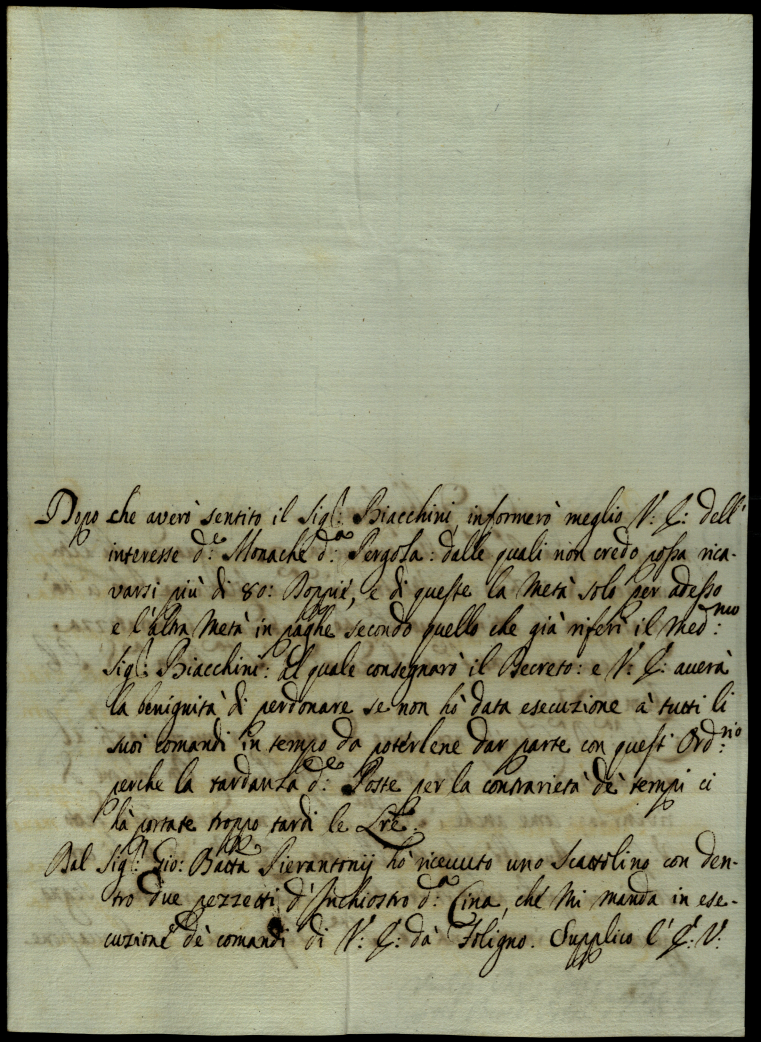 Dopo che averò sentito il Sig:r Biacchini, informerò meglio V: E: dell'
interesse d:e Monache d:a Pergola: dalle quali non credo possa rica-
varsi più di 80: Doppie, e di queste la Metà solo per adesso
e l'altra Metà in paghe secondo quello che già riferì il Med:mo
Sig:r Biacchini: al quale consegnarò il Decreto: e V: E: averà
la benignità di perdonare se non hò data esecuzione à tutti li
suoi comandi in tempo da potérlene dar parte con quest' Ord:rio
perche la tardanza d:e Poste per la contrarietà dè tempi ci
hà portate troppo tardi le Lrē.
Dal Sig:r Gio: Batta Pierantonij hò ricevuto uno Scattolino con den-
tro due pezzetti d'Inchiostro d:a Cina, che Mi manda in ese-
cuzione dè comandi di V: E: dà Foligno. Supplico l'E: V: